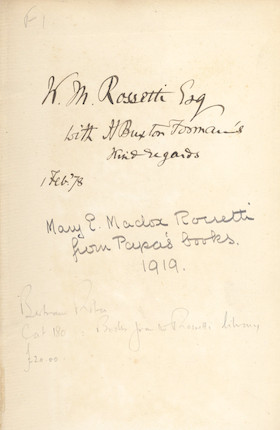 W. M. Rossetti Esq
with H Buxton Forman's
kind regards
1 Feb. '78
Mary E. Madox Rossetti
from Papa's books.
1919.
Bertram Rota
Cat 180 Books from the Rossetti Library
£20.00